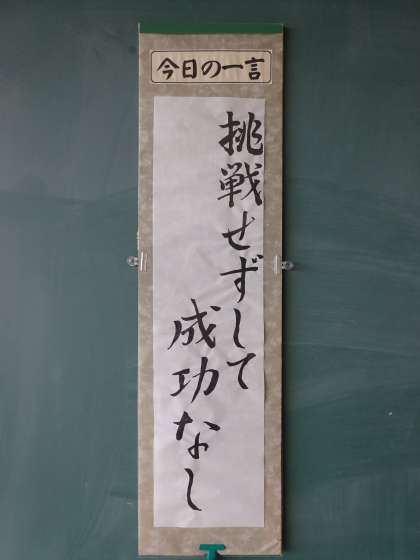 今日の一言
挑戦せずして
成功なし